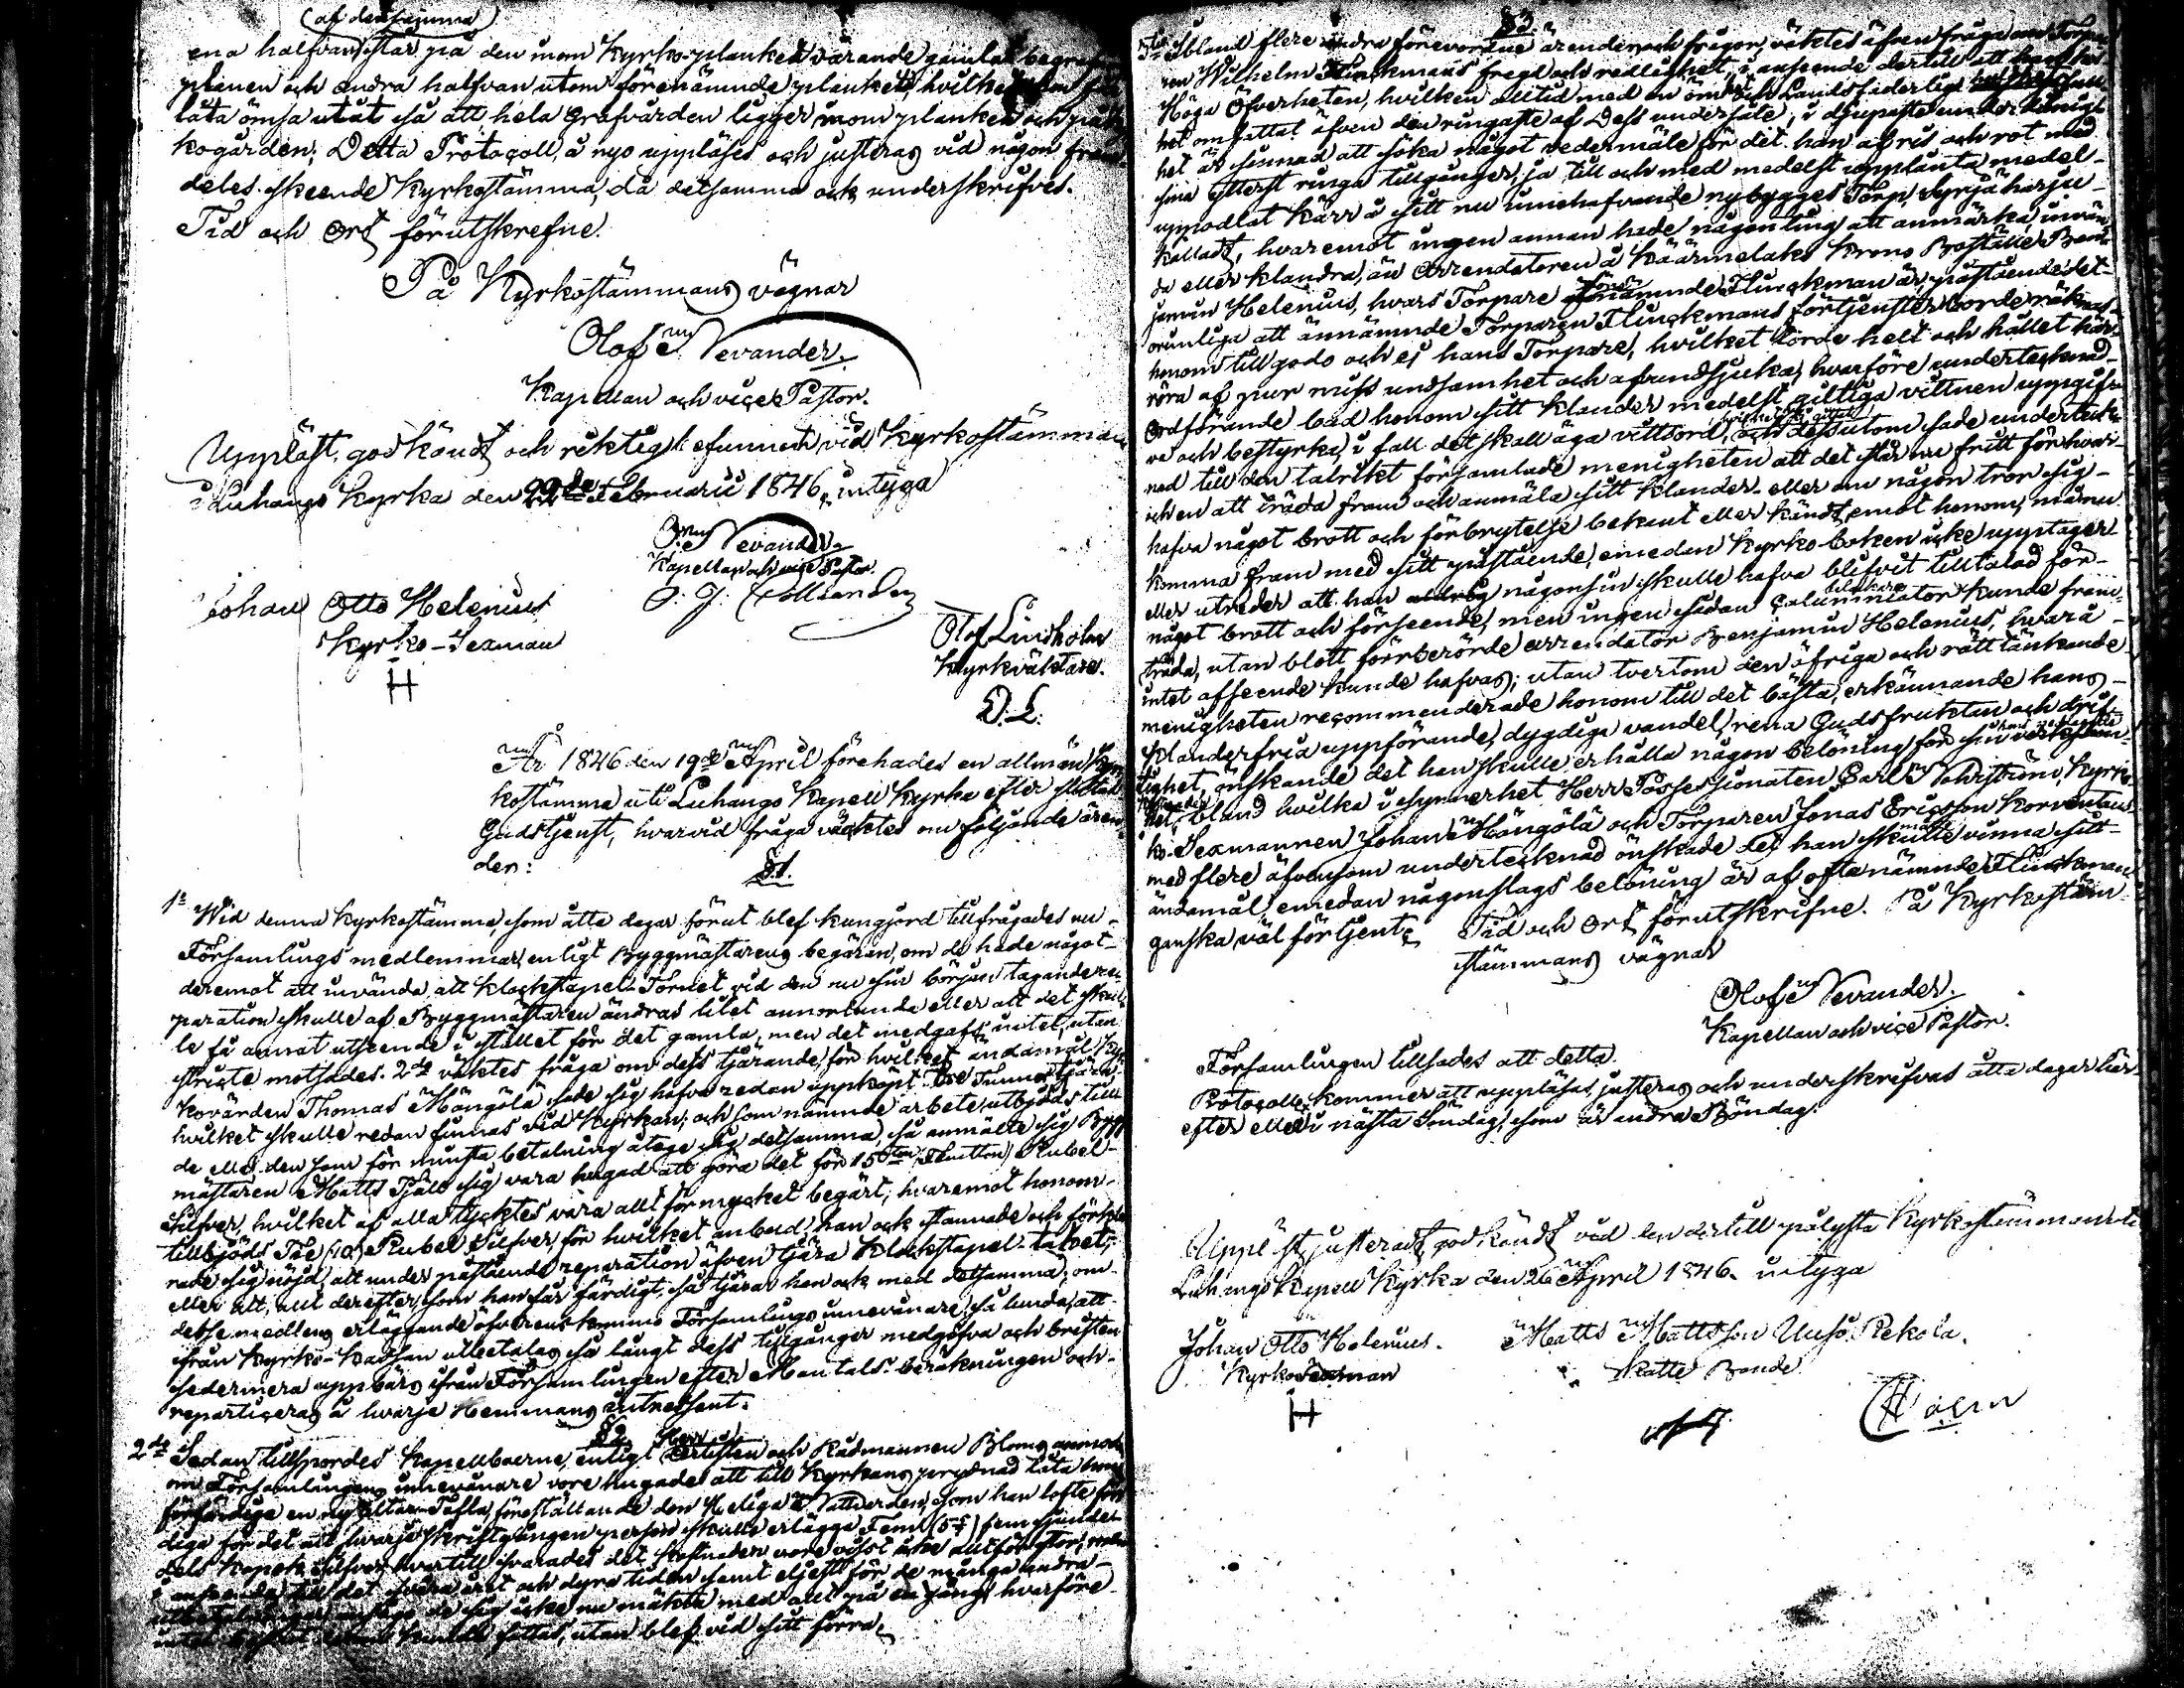 (af densamma)
ena halfvan står på den inom Kyrko-planket varande gamla
planen och andra halfvan utom förenämnde planket, hvilket
låta ömsa utåt så att hela Grafvården ligger inom planket och på
kogården; Detta Protocoll, å nyo uppläses och justeras vid någon fram-
deles skeende Kyrkostämma, då detsamma ock underskrifves.
Tid och Ort förutskrefne.
På Kyrkostämmans vägnar
Olof Nevander.
Kapellan och vice Pastor.
Uppläst, godkändt och riktigt befunnet vid Kyrkostämman
i Luhango Kyrka den 22dra Februarii 1846, intyga
O. Nevander
Kapellan och vice Pastor.
Johan Otto Helenius
Kyrko-Sexman
H
Olof Lindholm
Kyrkväktare.
O.L.
År 1846 den 19de April förehades en allmän Kyr-
kostämma uti Luhango Kapell Kyrka efter slutad
Gudstjenst, hvarvid fråga väcktes om följande ären-
der:
§.1.
1o Wid denna Kyrkostämma, som åtta dagar förut blef kungjord tillfrågades nu
Församlings medlemmar, enligt Byggmästarens begäran, om de hade något
deremot att invända, att Klockstapel-Tornet vid den nu sin början tagande re-
paration skulle af Byggmästaren ändras litet annorlunda eller att det skul-
le få annat utseende i stället för det gamla, men det medgafs intet, utan
stricte motsades. 2do väktes fråga om dess tjärande, för hvilket ändamål Kyr-
kovärden Thomas Mängölä sade sig hafva redan uppköpt Tre Tunnor tjära
hvilket skulle redan finnas vid Kyrkan; och som nämnde arbete utbjöds till
de eller den som för minsta betalning åtoge sig detsamma, så anmälte sig Bygg-
mästaren Matts Själs sig vara hugad att göra det för 15 (Femton) Rubel
Silfver, hvilket af alla tycktes vara allt för mycket begärt; hvaremot honom
tillbjöds Tio (10) Rubel Silfver, för hvilket anbud han ock stannade och förkla-
rade sig nöjd, att under påstående reparation äfven tjära Klockstapel-taket,
eller att, allt derefter, som han får färdigt, så tjärar han ock med detsamma; om
dessa medlens erläggande öfverenskommo Församlings innevånare, så lunda, att
ifrån Kyrko-Kassan utbetalas så långt dess tillgångar medgifva och bristen
sedermera uppbärs ifrån Församlingen efter Mantals-beräkningen och
reparticeras å hvarje Hemmans intressent.
§2.
2do Sedan tillspordes Kapellboerne, enligt Herr Artisten och Rådmannen Bloms
om Församlingens innevånare vore hugade att till Kyrkans prydnad låta
förfärdiga en ny Altar-Tafla, föreställande den Heliga Nattvarden, som han lofte för
diga för det att hvarje skriftgången person skulle erlägga Fem (5) fem
dels Kopek Silfver, hvartill svarades det kostnaden vore visst icke allt för stor, men
i anseende till det svåra året och dyra tiden samt eljest för de många andra
de sig icke nu mäkta med allt på en gång, hvarföre
intet beslut kunde fattas, utan blef vid sitt förra.
§3.
3tio Ibland flere andra förevordne ärenden och frågor, väktes äfven fråga om Torpa-
ren Wilhelm Flinckmans fregd och redlighet, i anseende dertill att han hos
Höga Öfverheten, hvilken alltid med en öm och Landsfaderlig
het omfattat äfven den ringaste af Dess undersåte, i djupaste underdånig-
het är sinnad att söka något vedermäle för det han af ris och rot med
sina ytterst ringa tillgångar, ja till och med medelst upplånta medel
uppodlat Kärr å sitt nu innehafvande nybygges Torp, Syrjäharju
kalladt, hvaremot ingen annan hade någonting att anmärka, invän-
da eller klandra, än Arrendatoren å Käärmelaks Krono Boställe Ben-
jamin Helenius, hvars Torpare förenämnde Flinckman är, påstående det-
orimliga att ännämnde Torparen Flinckmans förtjenster borde räknas
honom till godo och ej hans Torpare, hvilket torde helt och hållet här-
röra af pur missundsamhet och afundsjuka, hvarföre undertecknad
Ordförande bad honom sitt klander medelst giltiga vittnen uppgif-
va och bestyrka, i fall det skall äga vittsord, och dessutom sade underteck-
nad till den talrikt församlade menigheten att det står nu fritt för hvar
och en att träda fram och anmäla sitt klander eller om någon tror sig
hafva något brott och förbrytelse bekant eller kändt emot honom, månn
komma fram med sitt påstående, emedan Kyrko-boken icke upptager
eller utreder att han någonsin skulle hafva blifvit tilltalad för
något brott och förseende, men ingen sådan Calumniator kunde fram-
träda, utan blott förrberörde arrendator Benjamin Helenius, hvarå
intet afseende kunde hafvas; utan tvertom den öfriga och rätt tänkande
menigheten recommenderade honom till det bästa, erkännande hans
klanderfria uppförande, dygdiga vandel, rena Gudsfruktan och drif-
tighet, önskande det han skulle erhålla någon belöning för sin verksam-
het, bland hvilka i synnerhet Herr Possessionaten Carl Nohrström, Kyrko
ks-Sexmannen Johan Mängölä och Torparen Jonas Ericsson Korventaus
med flere äfvensom undertecknad önskade det han måtte vinna sitt
ändamål emedan någonslags belöning är af ofta nämnde Flinckman
ganska väl förtjent. Tid och Ort förutskrifne. På Kyrkostäm-
stämmans vägnar
Olof Nevander.
Kapellan och vice Pastor.
Församlingen tillsades att detta
Protocoll kommer att uppläsas, justeras och underskrifvas åtta dagar här-
efter eller i nästa Söndag, som är andra Böndag.
Uppläst, justeradt, godkändt vid den dertill pålysta Kyrkostämman uti
Luhango Kapell Kyrka den 26 April 1846. intyga
Johan Otto Helenius.
Kyrko Sexman
H
Matts Mattsson Uusi Pekola.
Skatte Bonde